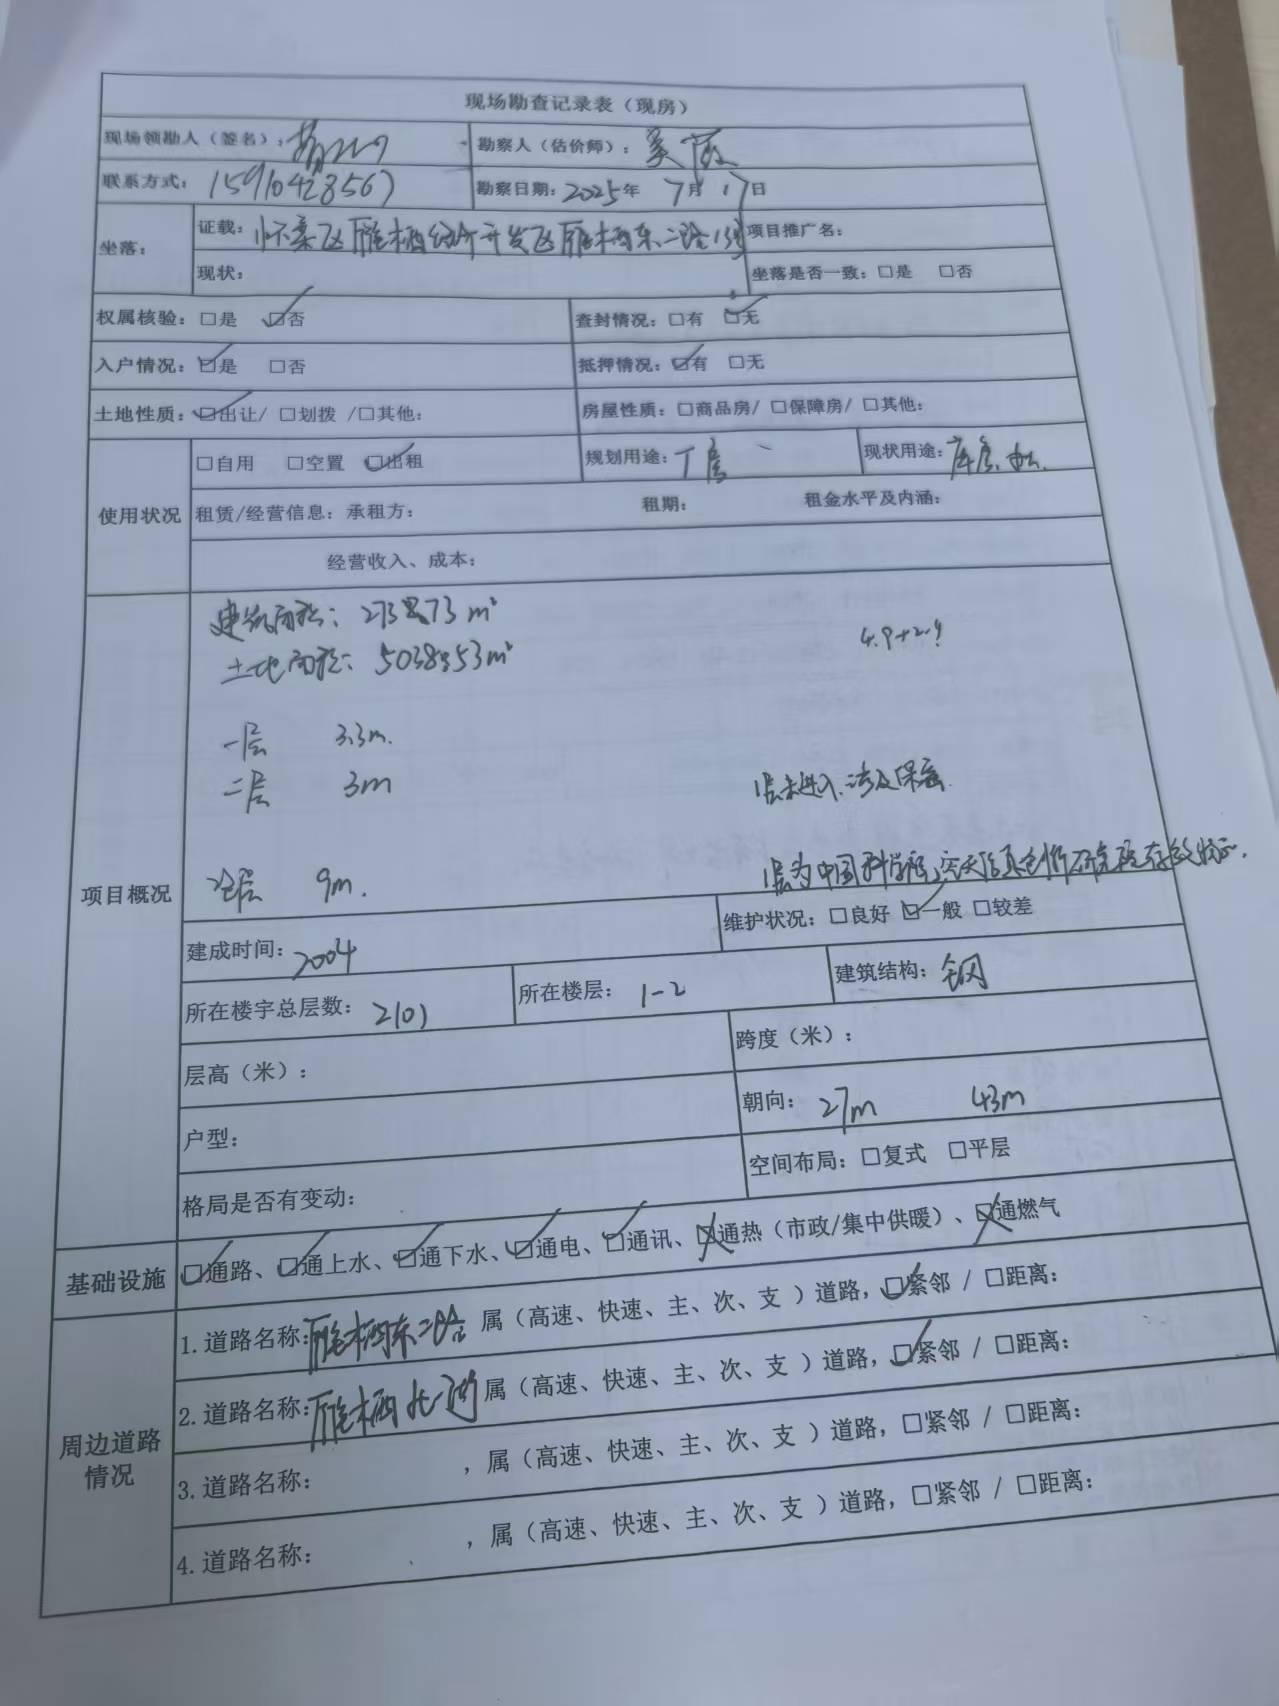 现场勘查记录表（现房）
现场领勘人（签名）： 勘察人（估价师）：
联系方式：15910428567 勘察日期：2025年 7月 17日
坐落： 证载：怀柔区雁栖经济开发区雁栖东二路 项目推广名：
现状： 坐落是否一致：□是 □否
权属核验：□是 ☑否 查封情况：□有 ☑无
入户情况：☑是 □否 抵押情况：☑有 □无
土地性质：☑出让/ □划拨 /□其他： 房屋性质：□商品房/ □保障房/ □其他：
使用状况 □自用 □空置 ☑出租 规划用途：厂房 现状用途：库房、办公
租赁/经营信息：承租方： 租期： 租金水平及内涵：
经营收入、成本：
建筑面积： m²
土地面积： m²
4.9+2.9
一层 3.3m.
二层 3m
1层未进入.涉及保密.
层 9m.
1层为中国科学院空天信息创新研究院存放
项目概况
建成时间：2004 维护状况：□良好 ☑一般 □较差
所在楼宇总层数：2(0) 所在楼层：1-2 建筑结构：钢
层高（米）： 跨度（米）：
户型： 朝向：27m 43m
格局是否有变动： 空间布局：□复式 □平层
基础设施 ☑通路、☑通上水、☑通下水、☑通电、☑通讯、☒通热（市政/集中供暖）、☒通燃气
周边道路情况 1.道路名称：雁栖东二路 属（高速、快速、主、次、支 ）道路，☑紧邻 / □距离：
2.道路名称：雁栖北一街 属（高速、快速、主、次、支 ）道路，☑紧邻 / □距离：
3.道路名称： ，属（高速、快速、主、次、支 ）道路，□紧邻 / □距离：
4.道路名称： ，属（高速、快速、主、次、支 ）道路，□紧邻 / □距离：